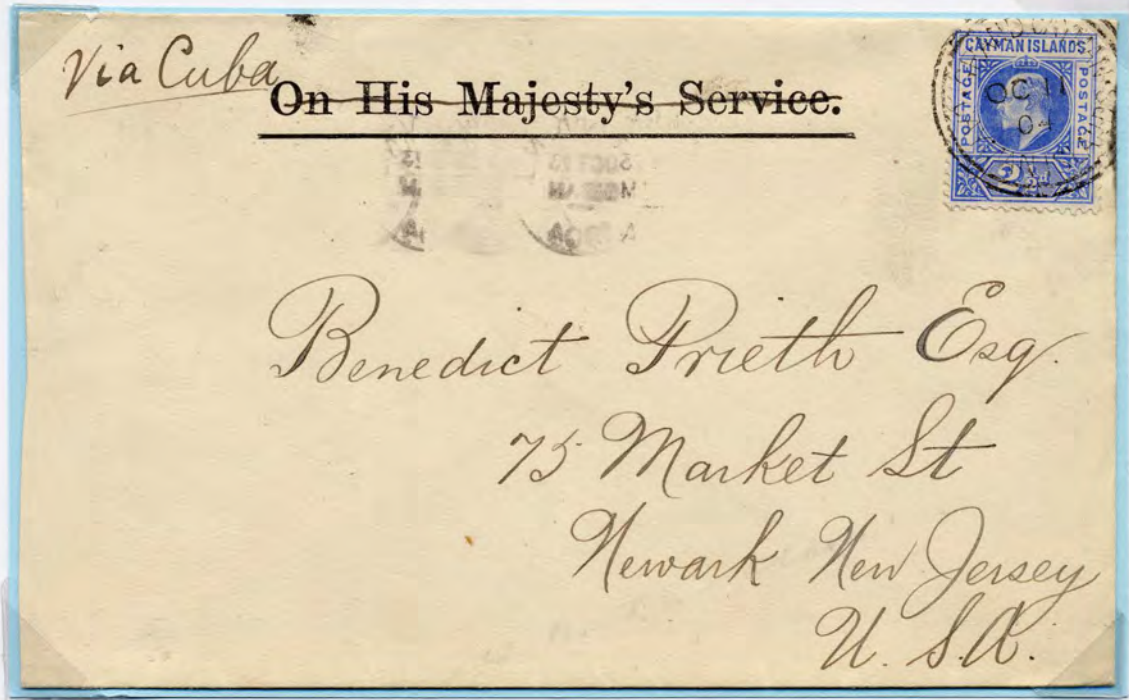 Via Cuba
On His Majesty's Service.
CAYMAN ISLANDS
POSTAGE
POSTAGE
2½d
OC 11
04
Benedict Prieth Esq.
75 Market St
Newark New Jersey
U. S. A.